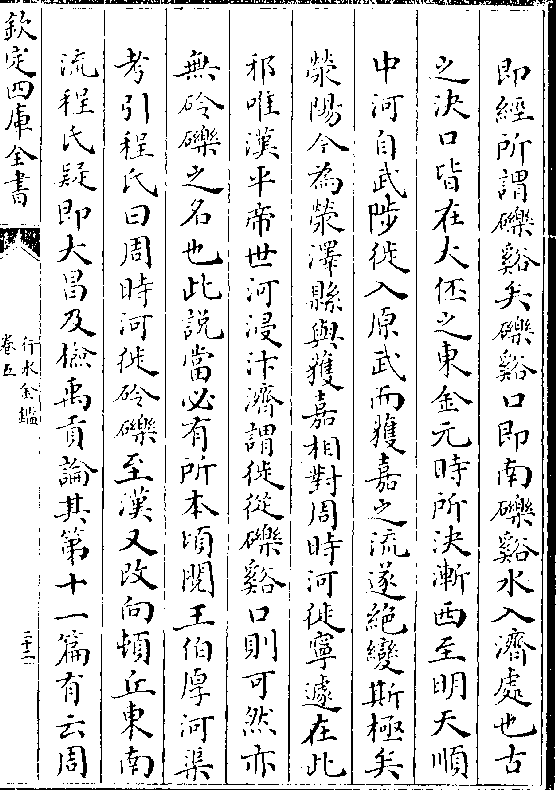 即經所謂礫谿矣礫谿口即南礫谿水入濟處也古
之決口皆在大伾之東金元時所決漸西至明天順
中河自武陟徙入原武而獲嘉之流遂絶變斯極矣
滎陽今為滎澤縣與獲嘉相對周時河徙寧遽在此
邪唯漢平帝世河浸汴濟謂徙從礫谿口則可然亦
無砱礫之名也此說當必有所本頃閱王伯厚河渠
考引程氏曰周時河徙砱礫至漢又改向頓丘東南
流程氏疑即大昌及檢禹貢論其第十一篇有云周
欽定四庫全書
行水金鑑
卷五
二十二